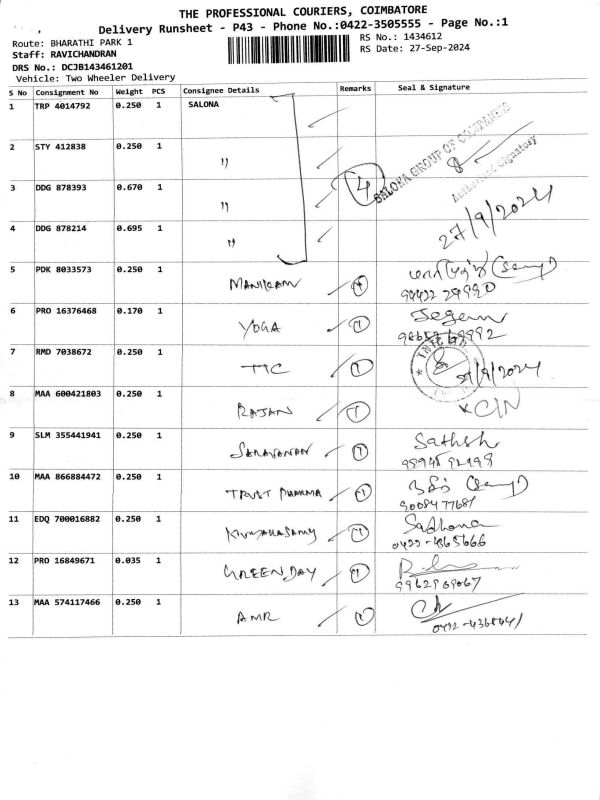 THE PROFESSIONAL COURIERS, COIMBATORE
Delivery Runsheet - P43 - Phone No.:0422-3505555 - Page No.:1
Route: BHARATHI PARK 1
RS No.: 1434612
Staff: RAVICHANDRAN
RS Date: 27-Sep-2024
DRS No.: DCJB143461201
Vehicle: Two Wheeler Delivery
S No Consignment No Weight PCS Consignee Details Remarks Seal & Signature
1 TRP 4014792 0.250 1 SALONA
2 STY 412838 0.250 1 "
3 DDG 878393 0.670 1 "
4
SALONA GROUP OF COMPANIES
Authorised Signatory
27/9/2024
4 DDG 878214 0.695 1 "
5 PDK 8033573 0.250 1 MANIKAM 1
6 PRO 16376468 0.170 1 YOGA 1
7 RMD 7038672 0.250 1 TTC 1 27/9/2024
8 MAA 600421803 0.250 1 RAJAN 1
9 SLM 355441941 0.250 1 SARAVANAN 1 Sathish
10 MAA 866884472 0.250 1 TRUST PHARMA 1
11 EDQ 700016882 0.250 1 1 Sadhana
0422-4365666
12 PRO 16849671 0.035 1 GREENDAY 1
13 MAA 574117466 0.250 1 AMR 1